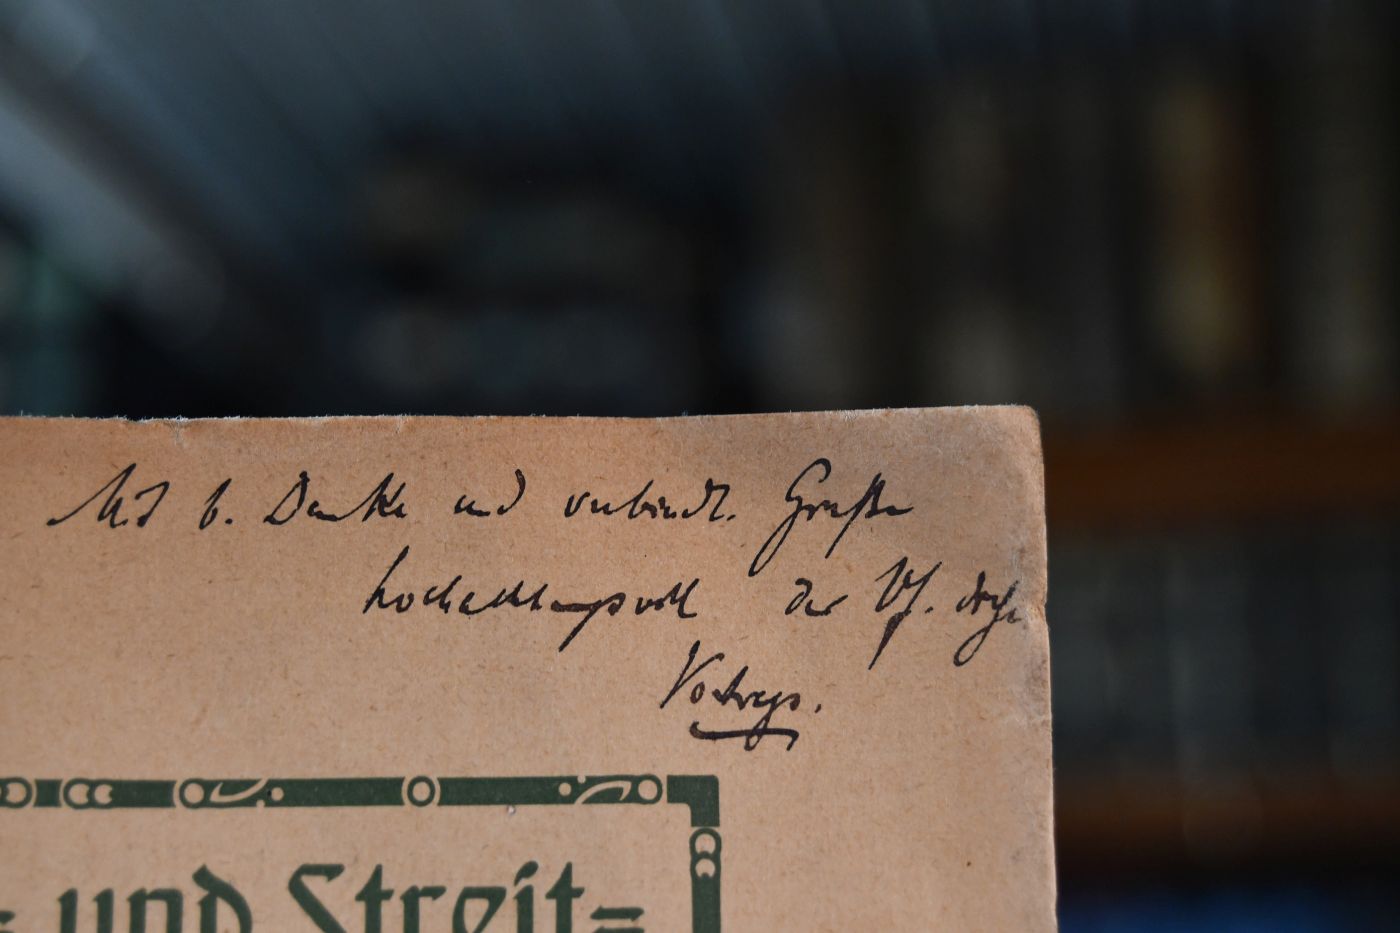 Mit b. Danke und verbindl. Grüße
hochachtungsvoll der Vf. des
Vortrags.
und Streit=